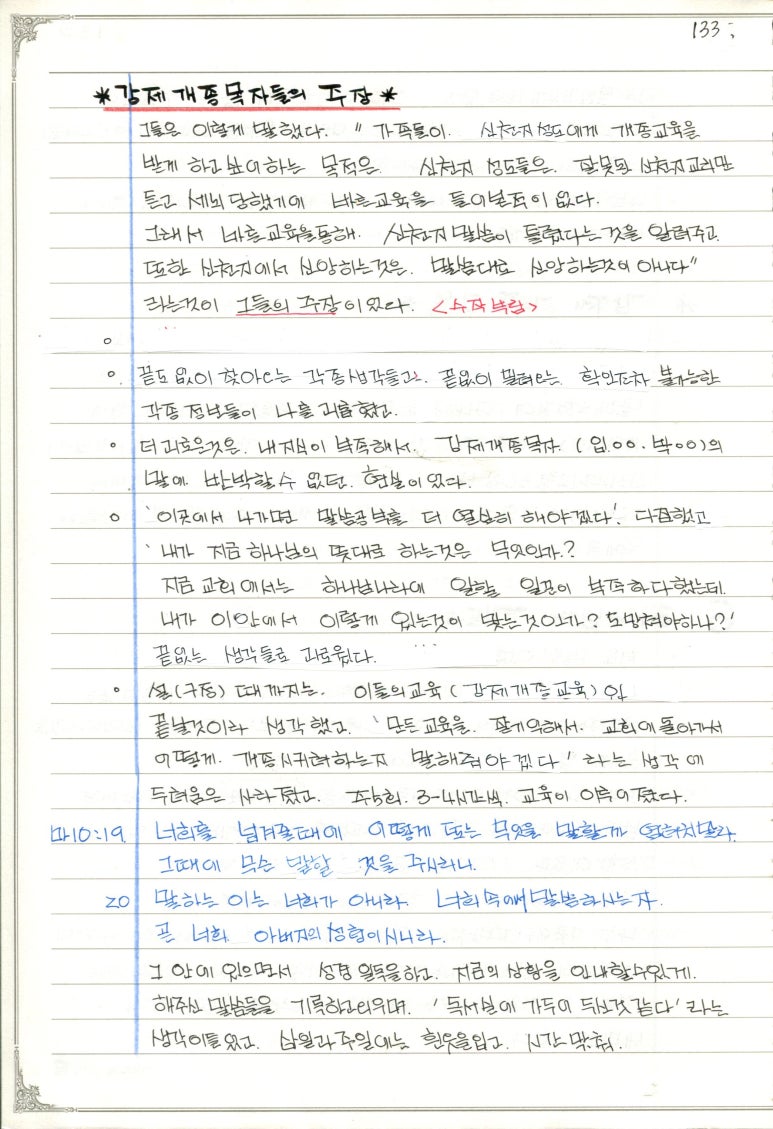 133
*강제개종목자들의 주장*
그들은 이렇게 말했다. " 가족들이. 신천지성도에게 개종교육을
받게 하고보이하는 목적은. 신천지 성도들은. 잘못된 신천지교리만
듣고 세뇌당했기에 바른교육을 들어본적이 없다.
그래서 바른교육을통해. 신천지말씀이 틀렸다는것을 알려주고.
또한 신천지에서 신앙하는것은. 말씀대로 신앙하는것이 아니다"
라는것이 그들의 주장이었다. <수작부림>
끝도 없이 찾아오는 각종생각들과. 끝없이 밀려오는. 확인조차 불가능한
각종 정보들이 나를 괴롭혔고.
더괴로운것은. 내지식이 부족해서. 강제개종목자. (임○○. 박○○)의
말에 반박할수 없던. 현실이었다.
'이곳에서 나가면 말씀공부를 더 열심히 해야겠다'. 다짐했고
'내가 지금 하나님의 뜻대로 하는것은 무엇인가?
지금 교회에서는 하나님나라에 일할 일꾼이 부족하다했는데.
내가 이안에서 이렇게 있는것이 맞는것인가? 도망쳐야하나?'
끝없는 생각들로 괴로웠다.
설(구정) 때까지는. 이들의교육(강제개종교육)이
끝날것이라 생각했고. '모든교육을. 잘기억해서. 교회에돌아가서
어떻게. 개종시키려하는지 말해줘야겠다' 라는 생각에
두려움은 사라졌고. 주5회. 3-4시간씩. 교육이 이루어졌다.
마10:19. 너희를 넘겨줄때에 어떻게 또는 무엇을 말할까 염려치말라.
그때에 무슨 말할 것을 주시리니.
20 말하는 이는 너희가 아니라. 너희속에서말씀하시는자.
곧 너희 아버지의성령이시니라.
그 안에 있으면서 성경 일독을하고. 지금의 상황을 인내할수있게.
해주신 말씀들을 기록하고외우며. '독서실에 가두어 두신것같다'라는
생각이들었고. 삼일과주일에는 흰옷을입고. 시간맞춰.